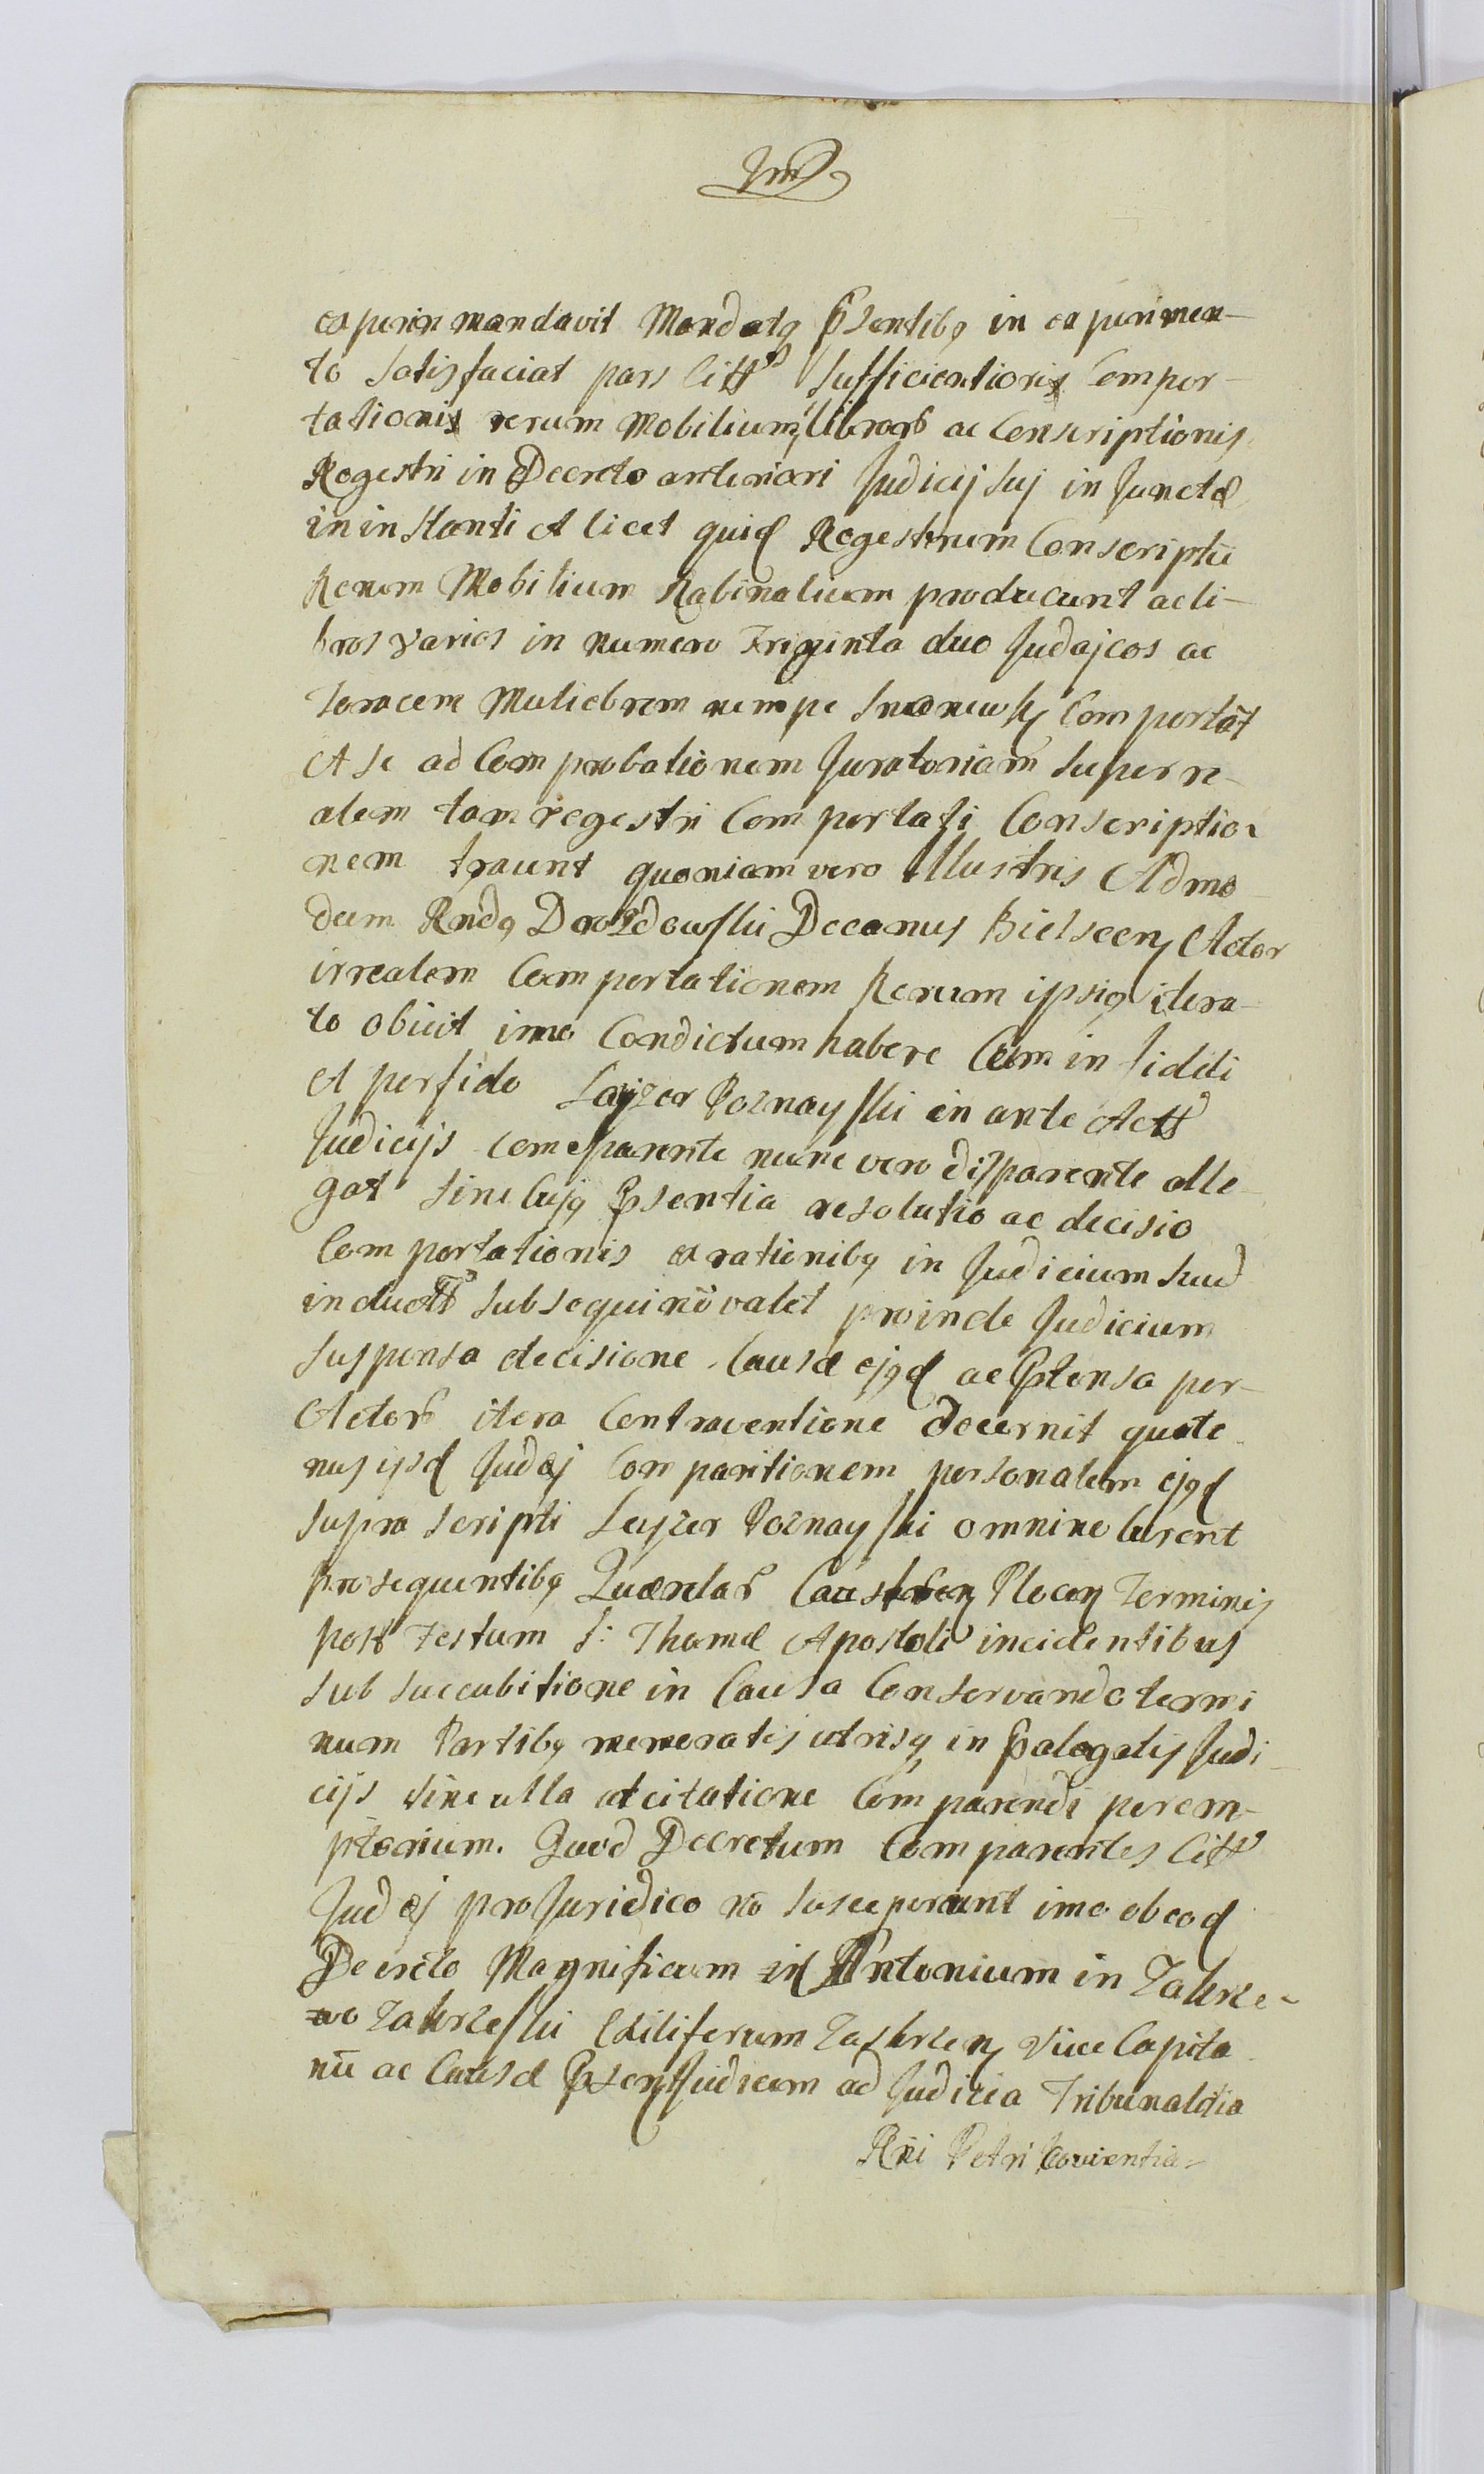 experiri mandavit Mandatq Psentibq in experimen-
to Satisfaciat pars Citt Sufficientioris Compor-
tationis rerum Mobilium, libror ac Conscriptionis
Regestri in Decreto anteriori Judicij Suj in Junctæ
in instanti Et licet quid Regestrum Conscriptū
Rerum Mobilium Rabinalium producunt ac li-
bros varios in numero Triginta duo Judajcos ac
Toracem Muliebrem nempe Comportāt
Et Se ad Comprobationem Juratoriam Super re-
alem tam regestri Comportati Conscriptio-
nem quoniam vero Illustris Admo
dum Rndq Drozdowski Decanus Bielscen Actor
irrealem Comportationem Rerum ipsiq itera-
to obiicit imo Condictum habere Cum infideli
Et perfido Layzer Poznayski in ante Actt
Judicijs Comparente nunc vero disparente alle
gat Sine Cujq Psentia resolutio ac decisio
Comportationis ex rationibq in Judicium Suud
inductt Subsequi nō valet proinde Judicium
Suspensa decisione Causæ ejqd ac Ptensa per
Actor itera Contraventione decernit quate
nus ijsd Judæj Comparitionem personalem ejqd
Supra Scripti Leyzer Poznayski omnino Curent
prosequentibq Querelar Castren Plocen Terminis
post Festum S: Thomæ Apostoli incidentibus
Sub Succubitione in Causa Conservando termi
num Partibq memoratis utrisq in Palegatis Judi
cijs Sine ulla adcitatione Comparendi perem-
ptorium. Quod Decretum Comparentes Citt
Judæj pro Juridico nō Susceperunt imo ab eod
Decreto Magnificum Antonium in Zakrze-
wo Zakrzeski Ensiferum Zakrzen Vice Capita
nū ac Causæ Psent Judicem ad Judicia Tribunalitia
Rni Petri